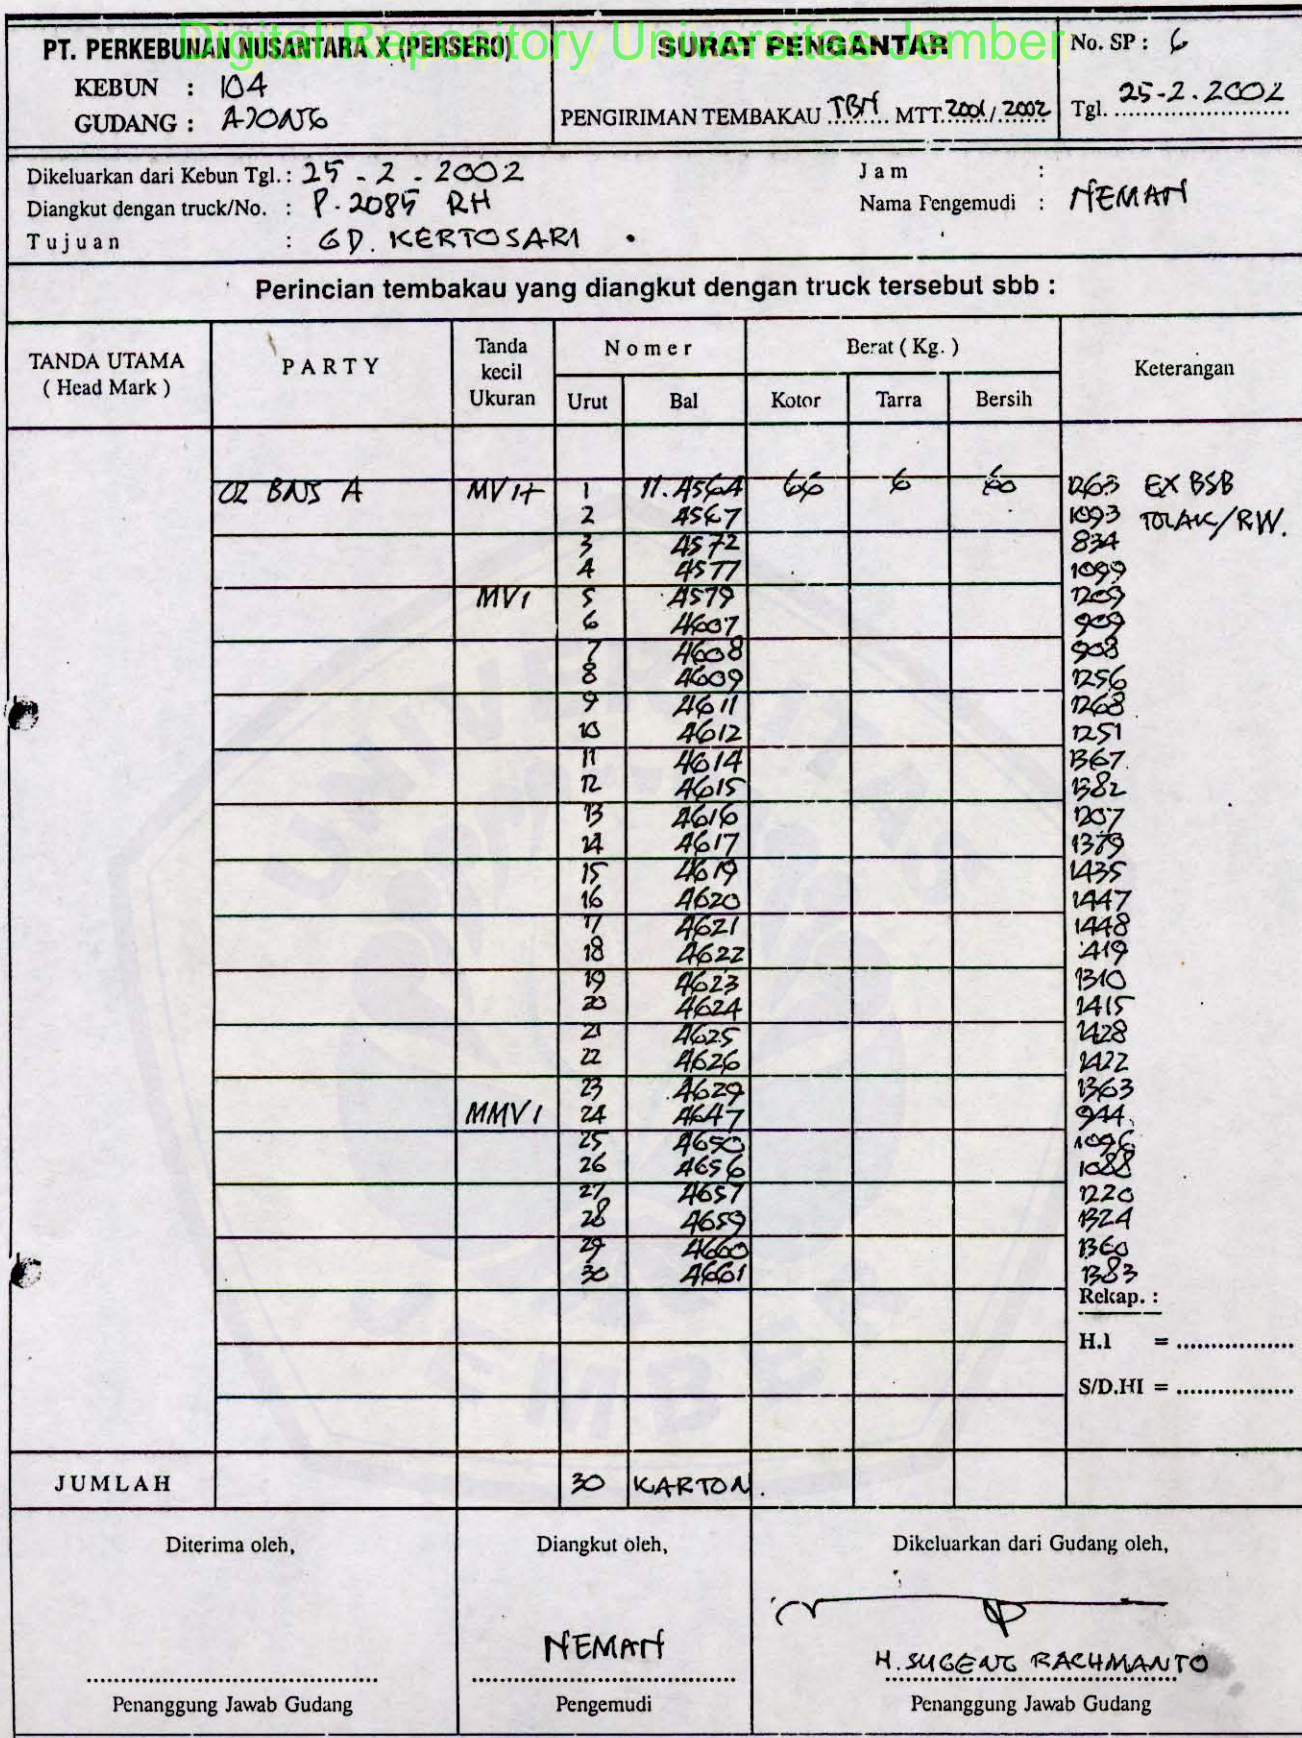 Digital Repository Universitas Jember
PT. PERKEBUNAN NUSANTARA X (PERSERO)
KEBUN : 104
GUDANG : AJONG
SURAT PENGANTAR
PENGIRIMAN TEMBAKAU TBN MTT. 2001 / 2002
No. SP : 6
Tgl. 25-2.2002
Dikeluarkan dari Kebun Tgl. : 25 - 2 - 2002
Diangkut dengan truck/No. : P. 2085 RH
Tujuan : GD. KERTOSARI
Jam :
Nama Pengemudi : NEMAN
Perincian tembakau yang diangkut dengan truck tersebut sbb :
TANDA UTAMA ( Head Mark )
PARTY
Tanda kecil Ukuran
Nomer
Urut Bal
Berat ( Kg. )
Kotor Tarra Bersih
Keterangan
02 BNS A MV 1+ 1 11.4564 66 6 60 1263 EX BSB
2 4567 1093 TOLAK/RW.
3 4572 834
4 4577 1099
MV1 5 4579 1209
6 4607 909
7 4608 908
8 4609 1256
9 4611 1268
10 4612 1251
11 4614 1367
12 4615 1382
13 4616 1207
14 4617 1379
15 4619 1435
16 4620 1447
17 4621 1448
18 4622 1419
19 4623 1310
20 4624 1415
21 4625 1428
22 4626 1422
23 4629 1363
MMV1 24 4647 944
25 4650 1096
26 4656 1088
27 4657 1220
28 4659 1324
29 4660 1360
30 4661 1383
Rekap. :
H.I = ..................
S/D.HI = ..................
JUMLAH 30 KARTON.
Diterima oleh,
Penanggung Jawab Gudang
Diangkut oleh,
NEMAN
Pengemudi
Dikeluarkan dari Gudang oleh,
H. SUGENG RACHMANTO
Penanggung Jawab Gudang